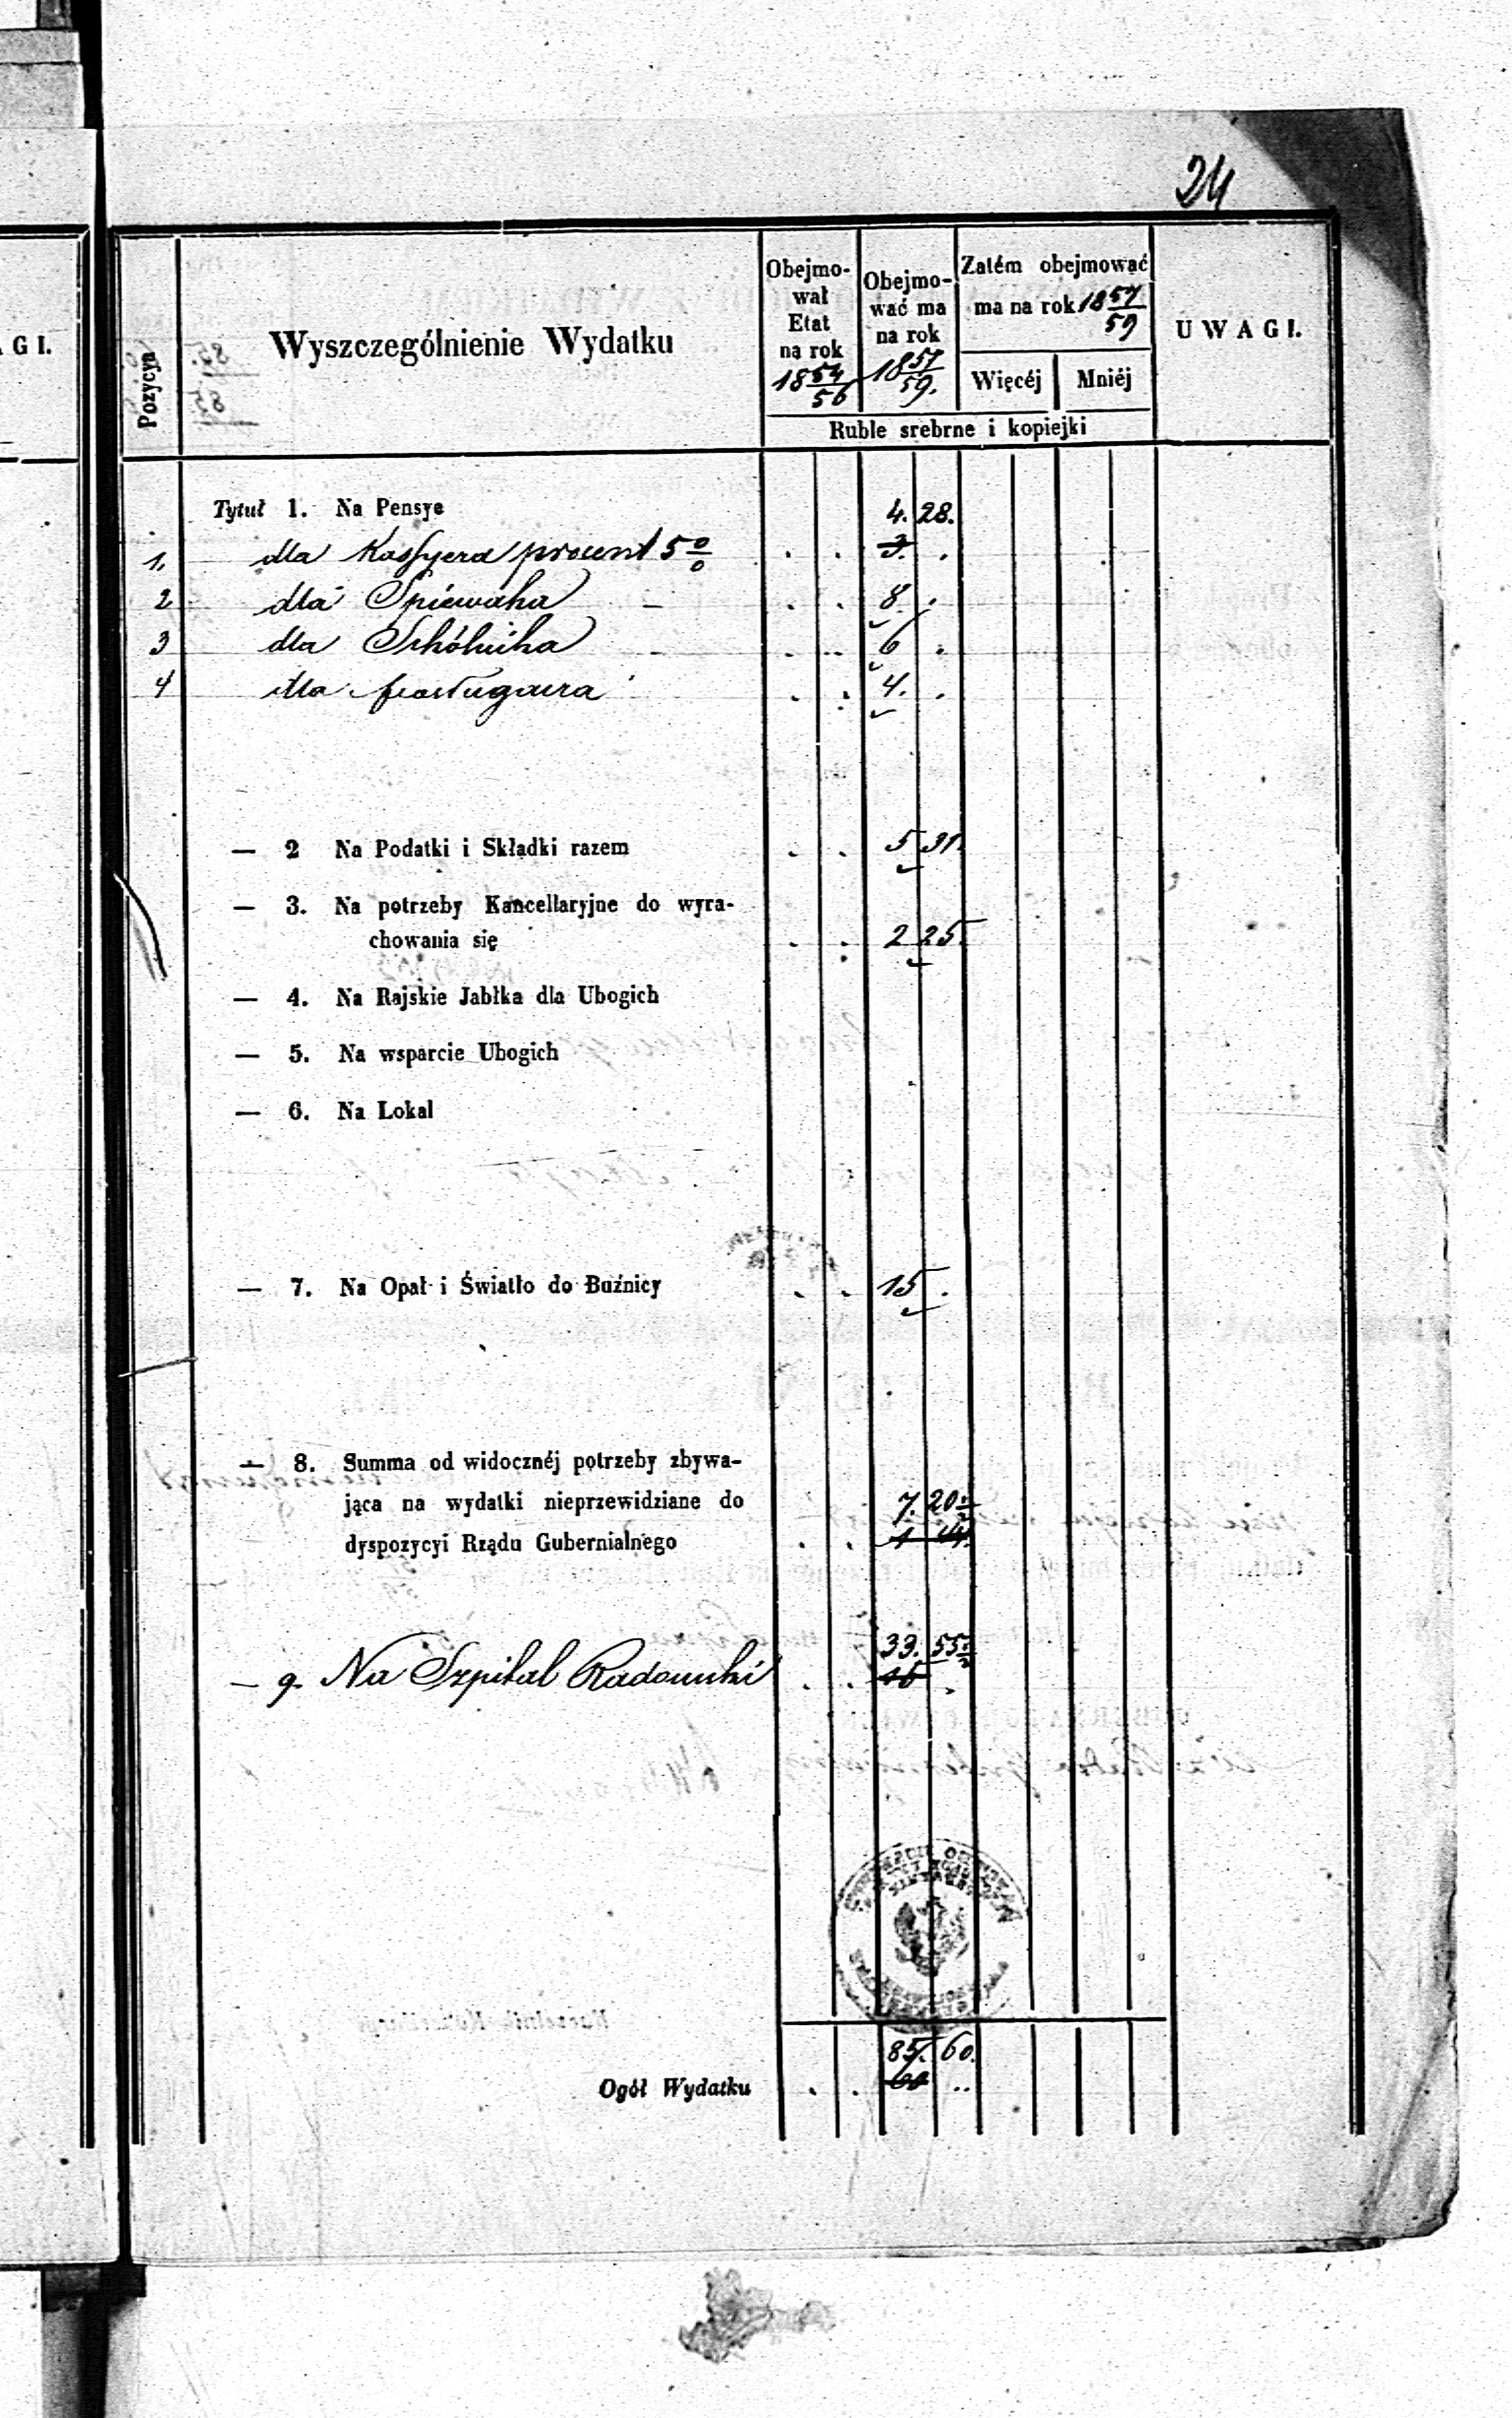 24
GI.
Pozycya
Wyszczególnienie Wydatku
Obejmo-
wał
Etat
na rok
18 54/56
Obejmo-
wać ma
na rok
18 57/59.
Zatém obejmować
ma na rok 18 57/59
Więcéj Mniéj
UWAGI.
Ruble srebrne i kopiejki
Tytuł 1. Na Pensye 4. 28.
1. dla Kassyera procent 5 0/0 . . 3. .
2 dla Śpiewaka — . . 8. .
3 dla Szkólnika — . . 6 .
4 dla posługacza . . 4. .
— 2 Na Podatki i Składki razem . . 5 31.
— 3. Na potrzeby Kancellaryjne do wyra-
chowania się . . 2 25.
— 4. Na Rajskie Jabłka dla Ubogich
— 5. Na wsparcie Ubogich
— 6. Na Lokal
— 7. Na Opał i Światło do Buźnicy . . 15 .
— 8. Summa od widocznéj potrzeby zbywa-
jąca na wydatki nieprzewidziane do 7. 20 1/2
dyspozycyi Rządu Gubernialnego . . 1 44.
33. 55 1/2
— 9. Na Szpital Radomski . . 15 .
85. 60.
Ogół Wydatku . . 60 ..